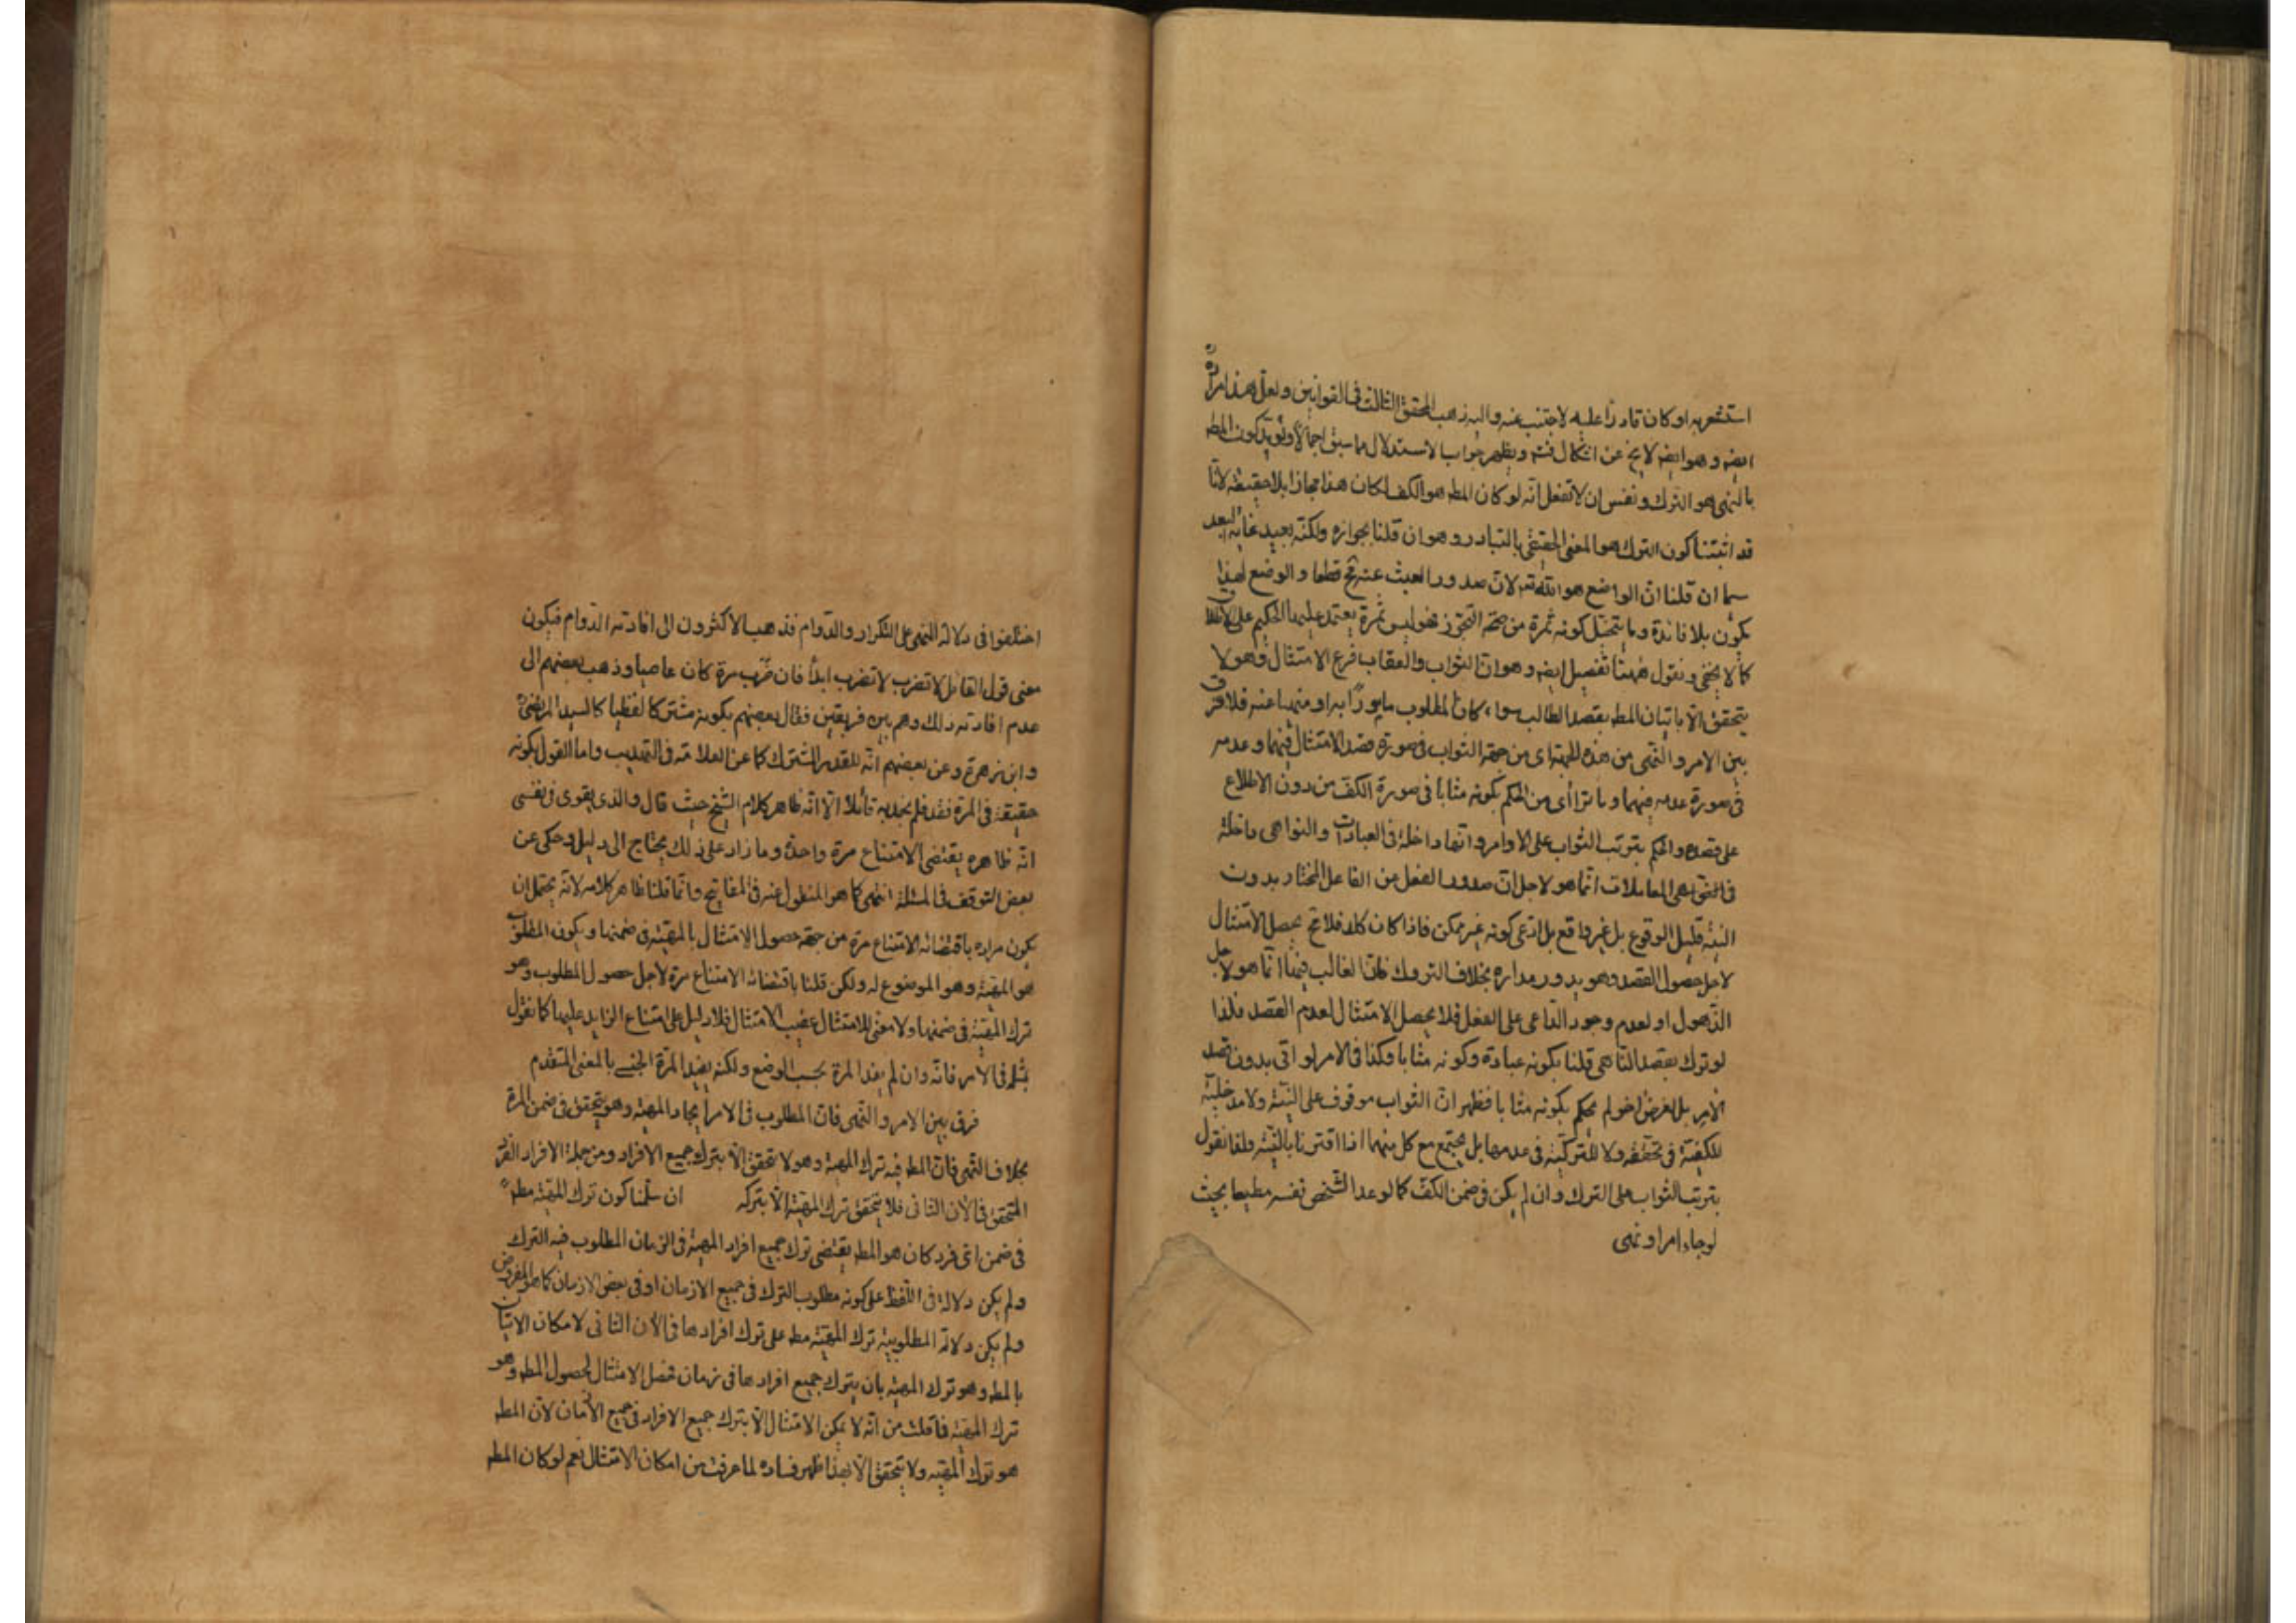 استشعر به او كان قادرًا عليه لاجتنب عنه واليه ذهب المحقق الثالث في القوانين ولعل هذا مراده
ايضه وهو ايضه لا يخ عن اشكال فتد ويظهر جواب الاستدلال مما سبق اجمالا ويؤيد كون المط
بالنهى هو الترك ونفس ان لا تفعل انه لو كان المط هو الكف لكان هذا مجازا بلا حقيقة لانا
قد اثبتنا كون الترك هو المعنى الحقيقي بالتبادر وهو ان قلنا بجوازه ولكنه بعيد غاية البعد
سيما ان قلنا ان الواضع هو الله تعه لان صدور العبث عنه قطعا والوضع لهذا
يكون بلا فائدة وما يتخيل كونه ثمرة من صحة التجوز فهو ليس ثمرة يعتمد عليها الحكيم على الاطلاق
كما لا يخفى ونقول ههنا تفصيل ايضه وهو ان الثواب والعقاب فرع الامتثال وهو لا
يتحقق الا باتيان المط بقصد الطالب سواء كان المطلوب مامورًا به او منهيا عنه فلا فرق
بين الامر والنهى من هذه الجهة اى من جهة الثواب في صورة قصد الامتثال فيهما وعدمه
في صورة عدمه فيهما وما ترااى من الحكم بكونه مثابا في صورة الكف من دون الاطلاع
على قصده والحكم بترتب الثواب على الاوامر وانها داخلة في العبادات والنواهى داخلة
في المعاملات انما هو لاجل ان صدور الفعل من الفاعل المختار بدون
النية قليل الوقوع بل غير واقع بل ادعى كونه غير ممكن فاذا كان كك فلا تح يحصل الامتثال
لاجل حصول القصد وهو يدور مداره بخلاف التروك فان الغالب فيها انما هو لاجل
الذهول او لعدم وجود الداعى على الفعل فلا يحصل الامتثال لعدم القصد فلذا
لو ترك بقصد الناهى قلنا بكونه عبادة وكونه مثابا وكذا في الامر لو اتى بدون قصد
الامر بل لغرض اخر لم يحكم بكونه مثابا فظهر ان الثواب موقوف على النية ولا مدخلية
للكفية في تحققه ولا للتركية في عدمها بل يجتمع مع كل منهما اذا اقترنا بالنية ولذا نقول
بترتب الثواب على الترك وان لم يكن في ضمن الكف كما لو عد الشخص نفسه مطيعا بحيث
لو جاء امر او نهى
اختلفوا في دلالة النهى على التكرار والدوام فذهب الاكثرون الى افادته الدوام فيكون
معنى قول القائل لا تضرب لا تضرب ابدًا فان ضرب مرة كان عاصيا وذهب بعضهم الى
عدم افادته ذلك وهم بين فريقين فقال بعضهم بكونه مشتركا لفظيا كالسيد المرتضى
وابن زهرة وعن بعضهم انه للقدر المشترك كما عن العلامة في التهذيب واما القول بكونه
حقيقة في المرة فقد فلم نجد به قائلا الا انه ظاهر كلام الشيخ حيث قال والذى يقوى في نفسى
انه ظاهره يقتضى الامتناع مرة واحدة وما زاد على ذلك يحتاج الى دليل وحكى عن
بعض التوقف في المسئلة انتهى كما هو المنقول عنه في المفاتيح وانما قلنا ظاهر كلامه لانه يحتمل ان
يكون مراده باقتضائه الامتناع مرة من جهة حصول الامتثال بالمهية في ضمنها ويكون المطلوب
هو المهية وهو الموضوع له ولكن قلنا باقتضائه الامتناع مرة لاجل حصول المطلوب وهو
ترك المهية في ضمنها ولا معنى للامتثال عقيب الامتثال فلا دليل على امتناع الزايد عليها كما نقول
بمثله في الامر فانه وان لم يفد المرة بحسب الوضع ولكنه يفيد المرة الجنسى بالمعنى المتقدم
فرق بين الامر والنهى فان المطلوب في الامر ايجاد المهية وهو يتحقق في ضمن المرة
بخلاف النهى فان المط فيه ترك المهية وهو لا يتحقق الا بترك جميع الافراد ومن جملة الافراد الفرد
المتحقق في الان الثانى فلا يتحقق ترك المهية الا بتركه ان سلمنا كون ترك المهية مط
في ضمن اى فرد كان هو المط يقتضى ترك جميع افراد المهية في الزمان المطلوب فيه الترك
ولم يكن دلالة في اللفظ على كونه مطلوب الترك في جميع الازمان او في بعض الازمان كما هو المفروض
ولم يكن دلالة المطلوبية ترك المهية مط على ترك افرادها في الان الثانى لامكان الاتيان
بالمط وهو ترك المهية بان يترك جميع افرادها في زمان فحصل الامتثال لحصول المط وهو
ترك المهية فما قلت من انه لا يمكن الامتثال الا بترك جميع الافراد في جميع الازمان لان المط
هو ترك المهية ولا يتحقق الا بهذا ظهر فساده لما عرفت من امكان الامتثال نعم لو كان المط